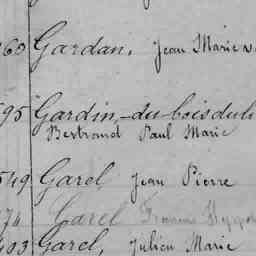 60 Gardan, Jean Marie
95 Gardin-du-boisdulie
Bertrand Paul Marie
549 Garel Jean Pierre
74 Garel
403 Garel, Julien Marie